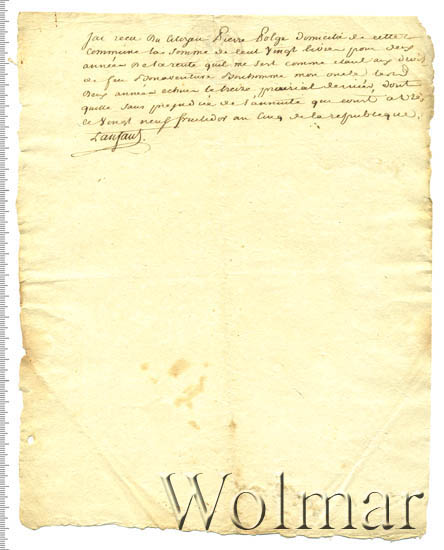 Jai recu Du Citoyen Pierre Polge Domicilié de cette
Commune la somme de cent vingt livres pour deux
années De la rente quil me sert comme étant aux droits
de feu Bonaventure Bonhomme mon oncle lesd.
deux années echues le treize prairial dernier, dont
quitte sans prejudice de l'annuité qui court a
ce vingt neuf fructidor an cinq de la republique,
Lanfant
Wolmar